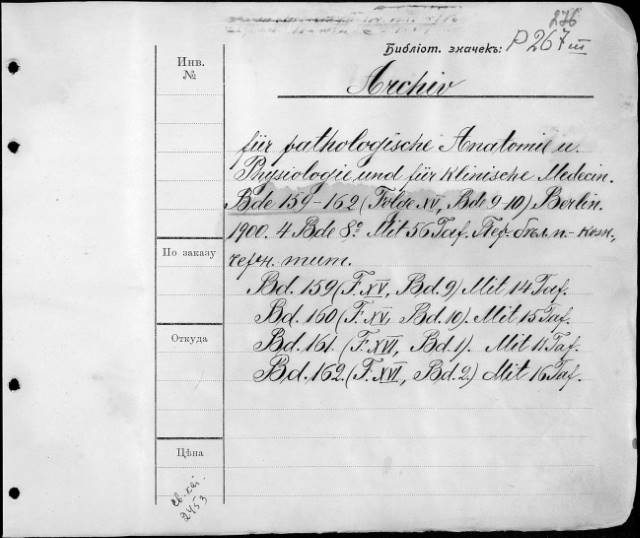 276
Библіот. значекъ: P 267 III
Инв.
№
Archiv
für pathologische Anatomie u.
Physiologie und für klinische Medecin.
Bde 159-162 (Folge XV, Bde 9-10) Berlin.
1900. 4 Bde 8º Mit 56 Taf. Пер.
черн. тит.
По заказу
Bd. 159 (F. XV, Bd. 9) Mit 14 Taf.
Bd. 160 (F. XV, Bd. 10). Mit 15 Taf.
Откуда
Bd. 161. (F. XVI, Bd. 1). Mit 11 Taf.
Bd. 162. (F. XVI, Bd. 2.) Mit 16 Taf.
Цѣна
2453